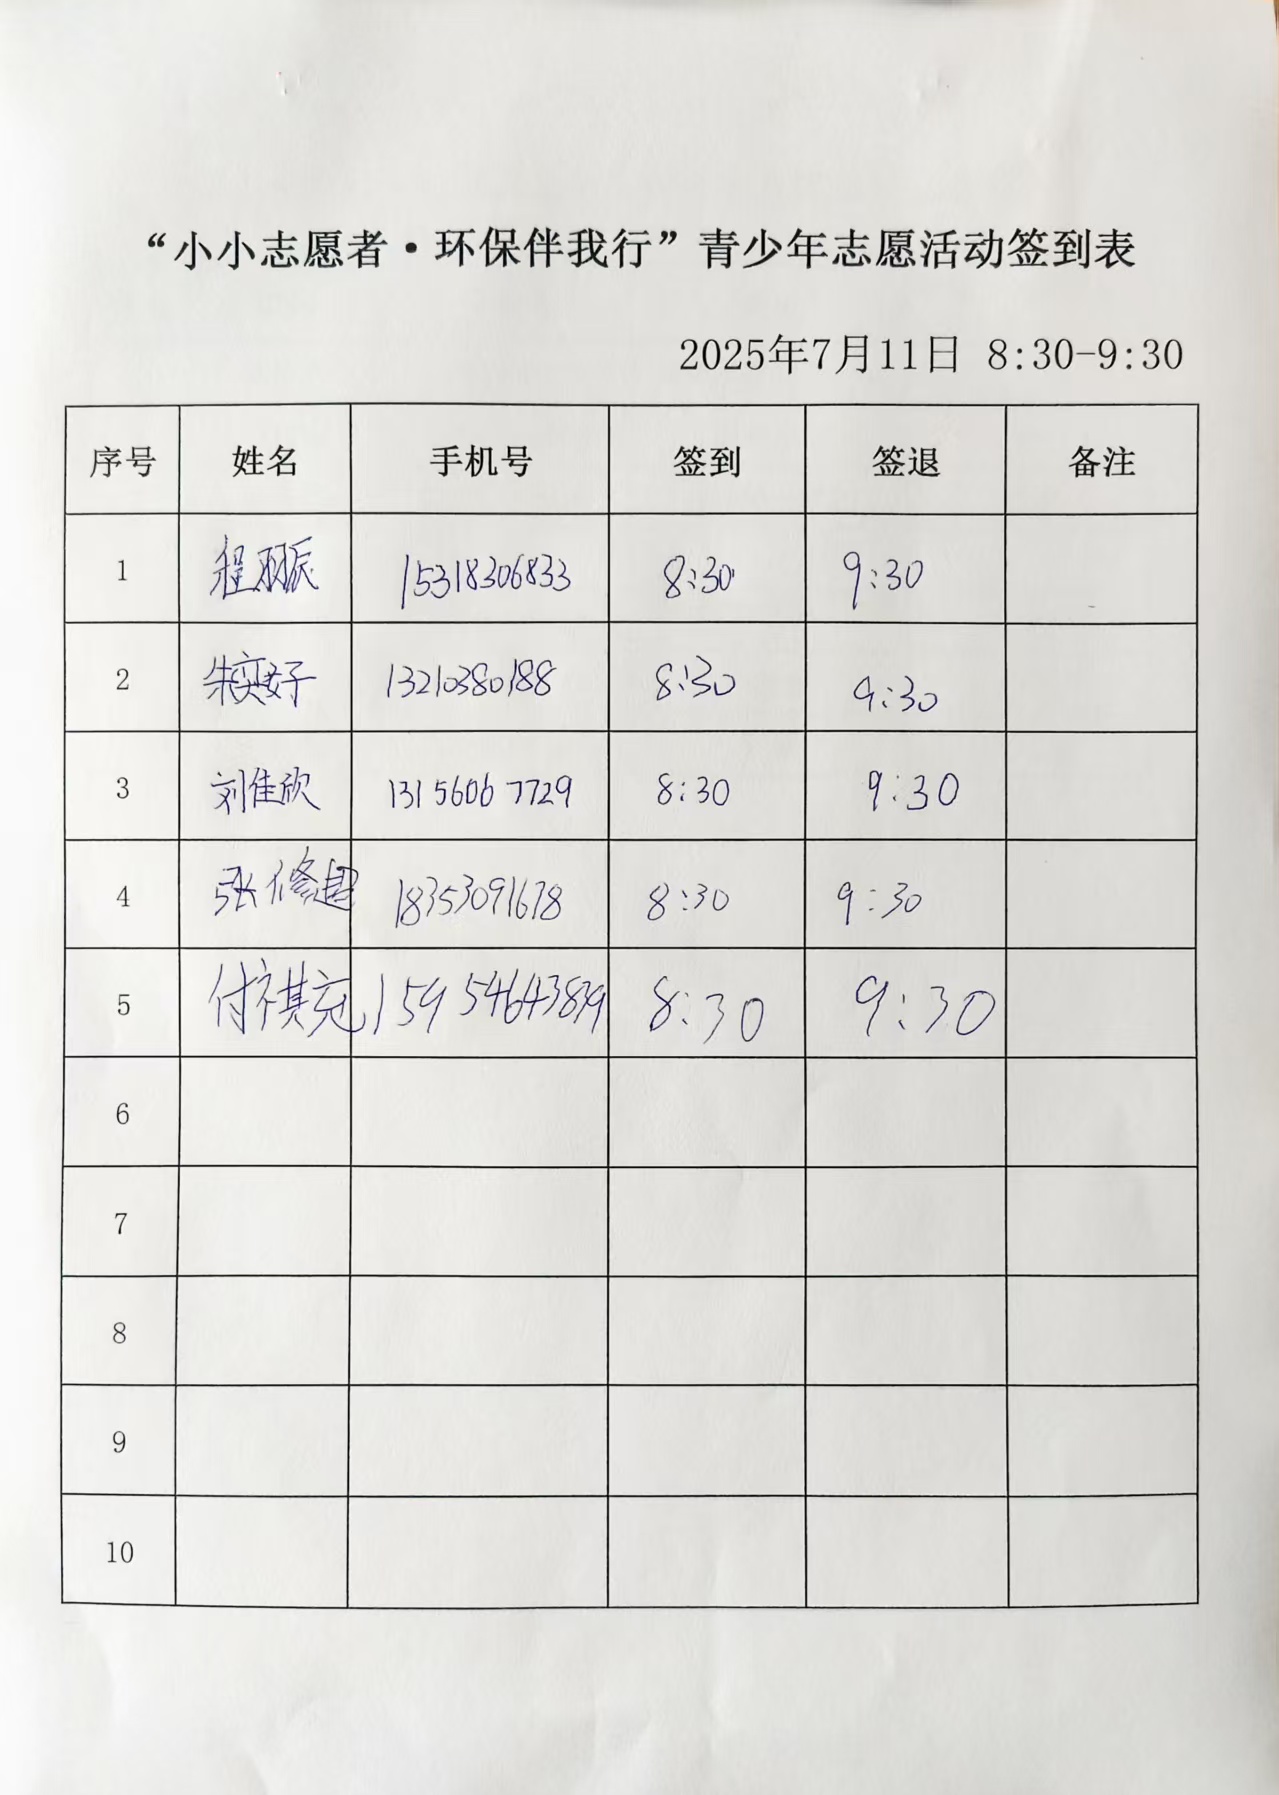 “小小志愿者·环保伴我行”青少年志愿活动签到表
2025年7月11日 8:30-9:30
序号 姓名 手机号 签到 签退 备注
1 程羽辰 15318306833 8:30 9:30
2 朱奕好 13210380188 8:30 9:30
3 刘佳欣 13156067729 8:30 9:30
4 张修 18353091678 8:30 9:30
5 付祺 15954643839 8:30 9:30
6
7
8
9
10